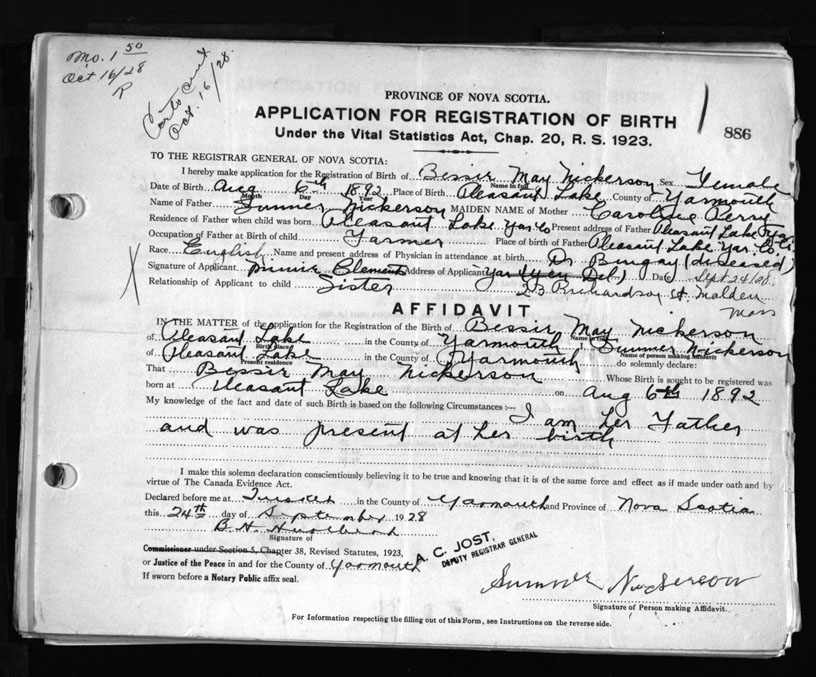 Mo. 1 50
Oct 16/28
R
Oct. 16/28.
PROVINCE OF NOVA SCOTIA.
APPLICATION FOR REGISTRATION OF BIRTH
886
Under the Vital Statistics Act, Chap. 20, R. S. 1923.
TO THE REGISTRAR GENERAL OF NOVA SCOTIA:
I hereby make application for the Registration of Birth of Bessie May Nickerson Sex Female
Name in full
Date of Birth Aug 6th 1892 Place of Birth Pleasant Lake County of Yarmouth
Month Day Year
Name of Father Sumner Nickerson MAIDEN NAME of Mother Caroline
Residence of Father when child was born Pleasant Lake Yar. Co Present address of Father Pleasant Lake
Occupation of Father at Birth of child Farmer Place of birth of Father Pleasant Lake Yar. Co.
Race English Name and present address of Physician in attendance at birth Dr Bingay (deceased)
Signature of Applicant Minnie Clements Address of Applicant Yar Date Sept 24/28.
Relationship of Applicant to child Sister Richardson St Malden
Mass
AFFIDAVIT
IN THE MATTER of the application for the Registration of the Birth of Bessie May Nickerson
Name in full
of Pleasant Lake in the County of Yarmouth I, Sumner Nickerson
Birth place Name of person making Affidavit
of Pleasant Lake in the County of Yarmouth do solemnly declare:
Present residence
That Bessie May Nickerson Whose Birth is sought to be registered was
born at Pleasant Lake on Aug 6th 1892
My knowledge of the fact and date of such Birth is based on the following Circumstances :— I am her Father
and was present at her birth
I make this solemn declaration conscientiously believing it to be true and knowing that it is of the same force and effect as if made under oath and by
virtue of The Canada Evidence Act.
Declared before me at Tusket in the County of Yarmouth and Province of Nova Scotia
this 24th day of September 1928
B. H.
Signature of
Commissioner under Section 5, Chapter 38, Revised Statutes, 1923,
or Justice of the Peace in and for the County of Yarmouth
A. C. JOST,
DEPUTY REGISTRAR GENERAL
If sworn before a Notary Public affix seal.
Sumner Nickerson
Signature of Person making Affidavit.
For Information respecting the filling out of this Form, see Instructions on the reverse side.